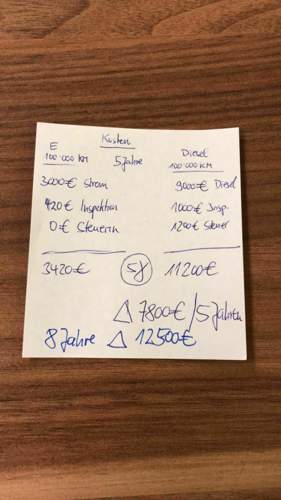 Kosten
E Diesel
100'000 KM 5 Jahre 100'000 KM
3000€ Strom 9000€ Diesel
420€ Inspektion 1000€ Insp.
0€ Steuern 1200€ Steuer
3420€ 5J 11200€
Δ 7800€/5 Jahren
8 Jahre Δ 12500€